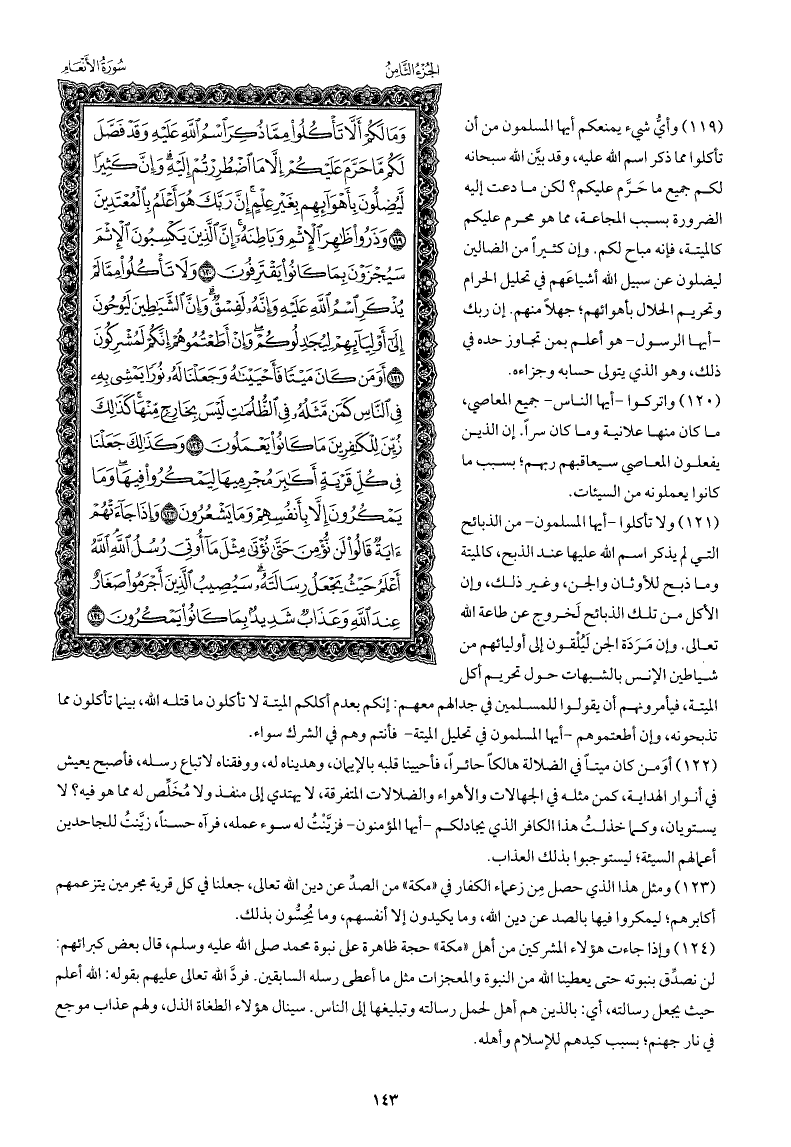 الجزء الثامن
سورة الأنعام
وَمَا لَكُمْ أَلَّا تَأْكُلُوا۟ مِمَّا ذُكِرَ ٱسْمُ ٱللَّهِ عَلَيْهِ وَقَدْ فَصَّلَ
لَكُم مَّا حَرَّمَ عَلَيْكُمْ إِلَّا مَا ٱضْطُرِرْتُمْ إِلَيْهِ ۗ وَإِنَّ كَثِيرًا
لَّيُضِلُّونَ بِأَهْوَآئِهِم بِغَيْرِ عِلْمٍ ۗ إِنَّ رَبَّكَ هُوَ أَعْلَمُ بِٱلْمُعْتَدِينَ
١١٩ وَذَرُوا۟ ظَٰهِرَ ٱلْإِثْمِ وَبَاطِنَهُۥٓ ۚ إِنَّ ٱلَّذِينَ يَكْسِبُونَ ٱلْإِثْمَ
سَيُجْزَوْنَ بِمَا كَانُوا۟ يَقْتَرِفُونَ ١٢٠ وَلَا تَأْكُلُوا۟ مِمَّا لَمْ
يُذْكَرِ ٱسْمُ ٱللَّهِ عَلَيْهِ وَإِنَّهُۥ لَفِسْقٌ ۗ وَإِنَّ ٱلشَّيَٰطِينَ لَيُوحُونَ
إِلَىٰٓ أَوْلِيَآئِهِمْ لِيُجَٰدِلُوكُمْ ۖ وَإِنْ أَطَعْتُمُوهُمْ إِنَّكُمْ لَمُشْرِكُونَ
١٢١ أَوَمَن كَانَ مَيْتًا فَأَحْيَيْنَٰهُ وَجَعَلْنَا لَهُۥ نُورًا يَمْشِى بِهِۦ
فِى ٱلنَّاسِ كَمَن مَّثَلُهُۥ فِى ٱلظُّلُمَٰتِ لَيْسَ بِخَارِجٍ مِّنْهَا ۚ كَذَٰلِكَ
زُيِّنَ لِلْكَٰفِرِينَ مَا كَانُوا۟ يَعْمَلُونَ ١٢٢ وَكَذَٰلِكَ جَعَلْنَا
فِى كُلِّ قَرْيَةٍ أَكَٰبِرَ مُجْرِمِيهَا لِيَمْكُرُوا۟ فِيهَا ۖ وَمَا
يَمْكُرُونَ إِلَّا بِأَنفُسِهِمْ وَمَا يَشْعُرُونَ ١٢٣ وَإِذَا جَآءَتْهُمْ
ءَايَةٌ قَالُوا۟ لَن نُّؤْمِنَ حَتَّىٰ نُؤْتَىٰ مِثْلَ مَآ أُوتِىَ رُسُلُ ٱللَّهِ ۘ ٱللَّهُ
أَعْلَمُ حَيْثُ يَجْعَلُ رِسَالَتَهُۥ ۗ سَيُصِيبُ ٱلَّذِينَ أَجْرَمُوا۟ صَغَارٌ
عِندَ ٱللَّهِ وَعَذَابٌ شَدِيدٌۢ بِمَا كَانُوا۟ يَمْكُرُونَ ١٢٤
(١١٩) وأيُّ شيء يمنعكم أيها المسلمون من أن
تأكلوا مما ذكر اسم الله عليه، وقد بيَّن الله سبحانه
لكم جميع ما حَرَّم عليكم؟ لكن ما دعت إليه
الضرورة بسبب المجاعة، مما هو محرم عليكم
كالميتة، فإنه مباح لكم. وإن كثيراً من الضالين
ليضلون عن سبيل الله أشياعَهم في تحليل الحرام
وتحريم الحلال بأهوائهم؛ جهلاً منهم. إن ربك
-أيها الرسول- هو أعلم بمن تجاوز حده في
ذلك، وهو الذي يتولى حسابه وجزاءه.
(١٢٠) واتركوا -أيها الناس- جميع المعاصي،
ما كان منها علانية وما كان سراً. إن الذين
يفعلون المعاصي سيعاقبهم ربهم؛ بسبب ما
كانوا يعملونه من السيئات.
(١٢١) ولا تأكلوا -أيها المسلمون- من الذبائح
التي لم يذكر اسم الله عليها عند الذبح، كالميتة
وما ذبح للأوثان والجن، وغير ذلك، وإن
الأكل من تلك الذبائح لَخروج عن طاعة الله
تعالى. وإن مَرَدَة الجن لَيُلْقون إلى أوليائهم من
شياطين الإنس بالشبهات حول تحريم أكل
الميتة، فيأمرونهم أن يقولوا للمسلمين في جدالهم معهم: إنكم بعدم أكلكم الميتة لا تأكلون ما قتله الله، بينما تأكلون مما
تذبحونه، وإن أطعتموهم -أيها المسلمون في تحليل الميتة- فأنتم وهم في الشرك سواء.
(١٢٢) أوَمن كان ميتاً في الضلالة هالكاً حائراً، فأحيينا قلبه بالإيمان، وهديناه له، ووفقناه لاتباع رسله، فأصبح يعيش
في أنوار الهداية، كمن مثله في الجهالات والأهواء والضلالات المتفرقة، لا يهتدي إلى منفذ ولا مُخَلِّص له مما هو فيه؟ لا
يستويان، وكما خذلتُ هذا الكافر الذي يجادلكم -أيها المؤمنون- فزيَّنْتُ له سوء عمله، فرآه حسناً، زيَّنتُ للجاحدين
أعمالهم السيئة؛ ليستوجبوا بذلك العذاب.
(١٢٣) ومثل هذا الذي حصل مِن زعماء الكفار في «مكة» من الصدِّ عن دين الله تعالى، جعلنا في كل قرية مجرمين يتزعمهم
أكابرهم؛ ليمكروا فيها بالصد عن دين الله، وما يكيدون إلا أنفسهم، وما يُحِسُّون بذلك.
(١٢٤) وإذا جاءت هؤلاء المشركين من أهل «مكة» حجة ظاهرة على نبوة محمد صلى الله عليه وسلم، قال بعض كبرائهم:
لن نصدِّق بنبوته حتى يعطينا الله من النبوة والمعجزات مثل ما أعطى رسله السابقين. فردَّ الله تعالى عليهم بقوله: الله أعلم
حيث يجعل رسالته، أي: بالذين هم أهل لحمل رسالته وتبليغها إلى الناس. سينال هؤلاء الطغاة الذل، ولهم عذاب موجع
في نار جهنم؛ بسبب كيدهم للإسلام وأهله.
١٤٣